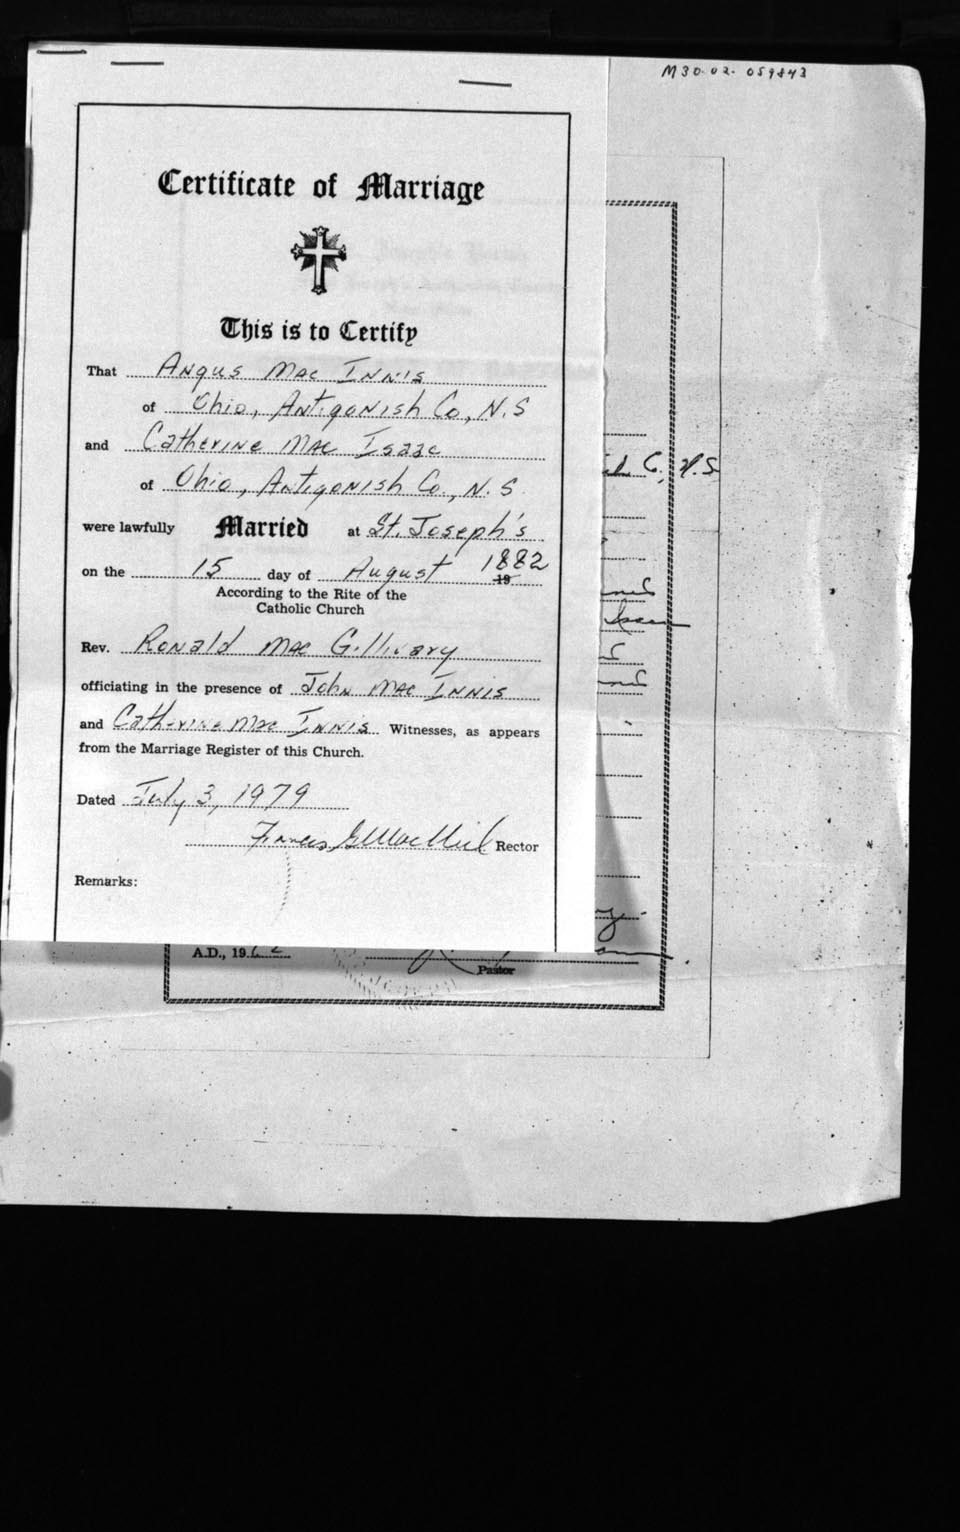 M30-02-059843
Certificate of Marriage
This is to Certify
That Angus Mac Innis
of Ohio, Antigonish Co., N.S
and Catherine Mac Isaac
of Ohio, Antigonish Co., N.S.
were lawfully Married at St. Joseph's
on the 15 day of August 1882 19
According to the Rite of the
Catholic Church
Rev. Ronald Mac Gillivary
officiating in the presence of John Mac Innis
and Catherine Mac Innis Witnesses, as appears
from the Marriage Register of this Church.
Dated July 3, 1979
Francis Rector
Remarks:
Co, N.S
A.D., 19
Pastor